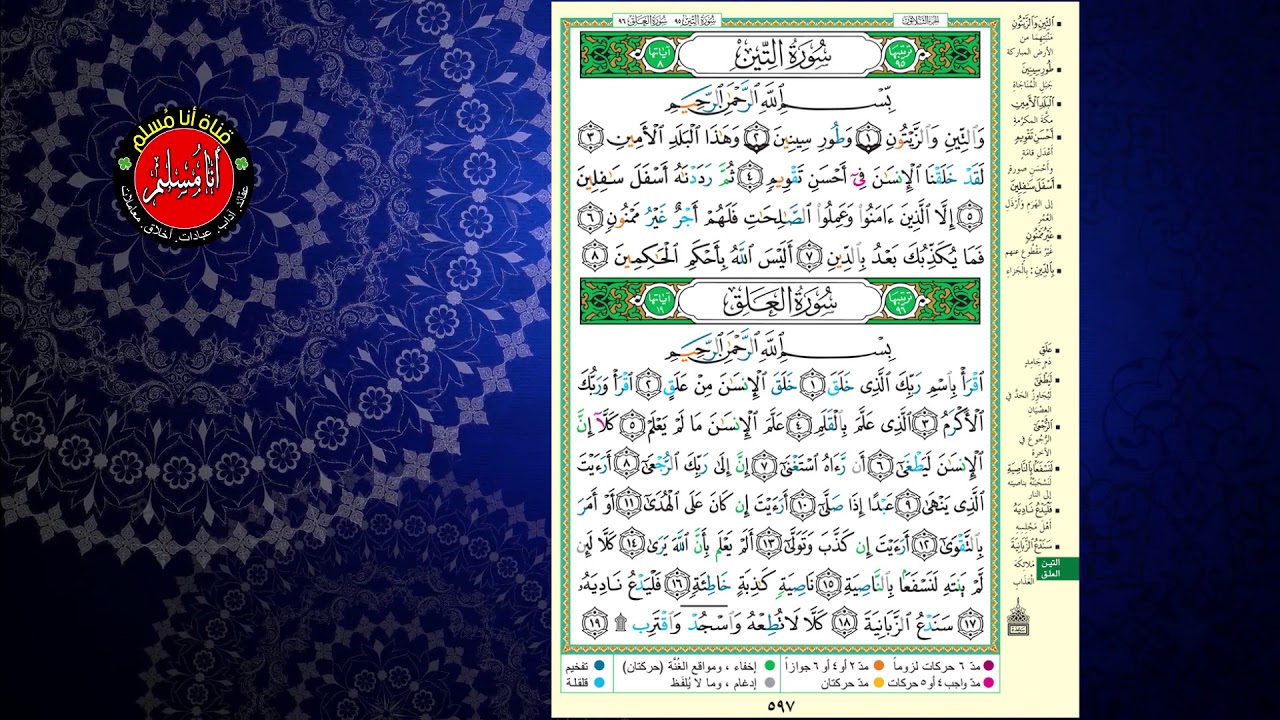 قناة أنا مُسلم
أَنَا مُسْلِم
عقائد. آداب. عبادات. أخلاق. معاملات.
سُورَةُ التِّينِ ٩٥ سُورَةُ العَلَقِ ٩٦
الجزءُ الثَّلاثُونَ
ترتيبها ٩٥ سُورَةُ التِّينِ آياتها ٨
بِسْمِ ٱللَّهِ ٱلرَّحْمَٰنِ ٱلرَّحِيمِ
وَٱلتِّينِ وَٱلزَّيْتُونِ ١ وَطُورِ سِينِينَ ٢ وَهَٰذَا ٱلْبَلَدِ ٱلْأَمِينِ ٣
لَقَدْ خَلَقْنَا ٱلْإِنسَٰنَ فِىٓ أَحْسَنِ تَقْوِيمٍ ٤ ثُمَّ رَدَدْنَٰهُ أَسْفَلَ سَٰفِلِينَ
٥ إِلَّا ٱلَّذِينَ ءَامَنُوا۟ وَعَمِلُوا۟ ٱلصَّٰلِحَٰتِ فَلَهُمْ أَجْرٌ غَيْرُ مَمْنُونٍ ٦
فَمَا يُكَذِّبُكَ بَعْدُ بِٱلدِّينِ ٧ أَلَيْسَ ٱللَّهُ بِأَحْكَمِ ٱلْحَٰكِمِينَ ٨
ترتيبها ٩٦ سُورَةُ العَلَقِ آياتها ١٩
بِسْمِ ٱللَّهِ ٱلرَّحْمَٰنِ ٱلرَّحِيمِ
ٱقْرَأْ بِٱسْمِ رَبِّكَ ٱلَّذِى خَلَقَ ١ خَلَقَ ٱلْإِنسَٰنَ مِنْ عَلَقٍ ٢ ٱقْرَأْ وَرَبُّكَ
ٱلْأَكْرَمُ ٣ ٱلَّذِى عَلَّمَ بِٱلْقَلَمِ ٤ عَلَّمَ ٱلْإِنسَٰنَ مَا لَمْ يَعْلَمْ ٥ كَلَّآ إِنَّ
ٱلْإِنسَٰنَ لَيَطْغَىٰٓ ٦ أَن رَّءَاهُ ٱسْتَغْنَىٰٓ ٧ إِنَّ إِلَىٰ رَبِّكَ ٱلرُّجْعَىٰٓ ٨ أَرَءَيْتَ
ٱلَّذِى يَنْهَىٰ ٩ عَبْدًا إِذَا صَلَّىٰٓ ١٠ أَرَءَيْتَ إِن كَانَ عَلَى ٱلْهُدَىٰٓ ١١ أَوْ أَمَرَ
بِٱلتَّقْوَىٰٓ ١٢ أَرَءَيْتَ إِن كَذَّبَ وَتَوَلَّىٰٓ ١٣ أَلَمْ يَعْلَم بِأَنَّ ٱللَّهَ يَرَىٰ ١٤ كَلَّا لَئِن
لَّمْ يَنتَهِ لَنَسْفَعًۢا بِٱلنَّاصِيَةِ ١٥ نَاصِيَةٍ كَٰذِبَةٍ خَاطِئَةٍ ١٦ فَلْيَدْعُ نَادِيَهُۥ
١٧ سَنَدْعُ ٱلزَّبَانِيَةَ ١٨ كَلَّا لَا تُطِعْهُ وَٱسْجُدْ وَٱقْتَرِب ۩ ١٩
التِّينِ وَالزَّيْتُونِ
مَنْبَتِهِمَا من
الأرض المباركة
طُورِ سِينِينَ
جَبَلِ الْمُنَاجَاةِ
الْبَلَدِ الْأَمِينِ
مكَّة المكرَّمةِ
أَحْسَنِ تَقْوِيمٍ
أَعْدَلِ قامَةٍ
وأحْسَنِ صورةٍ
أَسْفَلَ سَافِلِينَ
إلى الهَرَمِ وأَرْذَلِ
العُمُرِ
غَيْرُ مَمْنُونٍ
غَيْرُ مَقْطُوعٍ عنهم
بِالدِّينِ: بِالْجَزاءِ
عَلَقٍ
دَمٍ جَامِدٍ
لَيَطْغَى
لَيُجَاوِزُ الحَدَّ في
العِصْيَانِ
الرُّجْعَى
الرُّجُوعَ في
الآخرةِ
لَنَسْفَعًا بِالنَّاصِيَةِ
لَنَسْحَبَنَّهُ بناصيتِهِ
إلى النار
فَلْيَدْعُ نَادِيَهُ
أَهْلَ مَجْلِسِهِ
سَنَدْعُ الزَّبَانِيَةَ
مَلائِكَةَ
الْعَذَابِ
التين
العلق
مدّ ٦ حركات لزوماً
مدّ ٢ أو ٤ أو ٦ جوازاً
إخفاء ، ومواقع الغُنَّة (حركتان)
تفخيم
مدّ واجب ٤ أو ٥ حركات
مدّ حركتان
إدغام ، وما لا يُلفَظ
قلقلة
٥٩٧